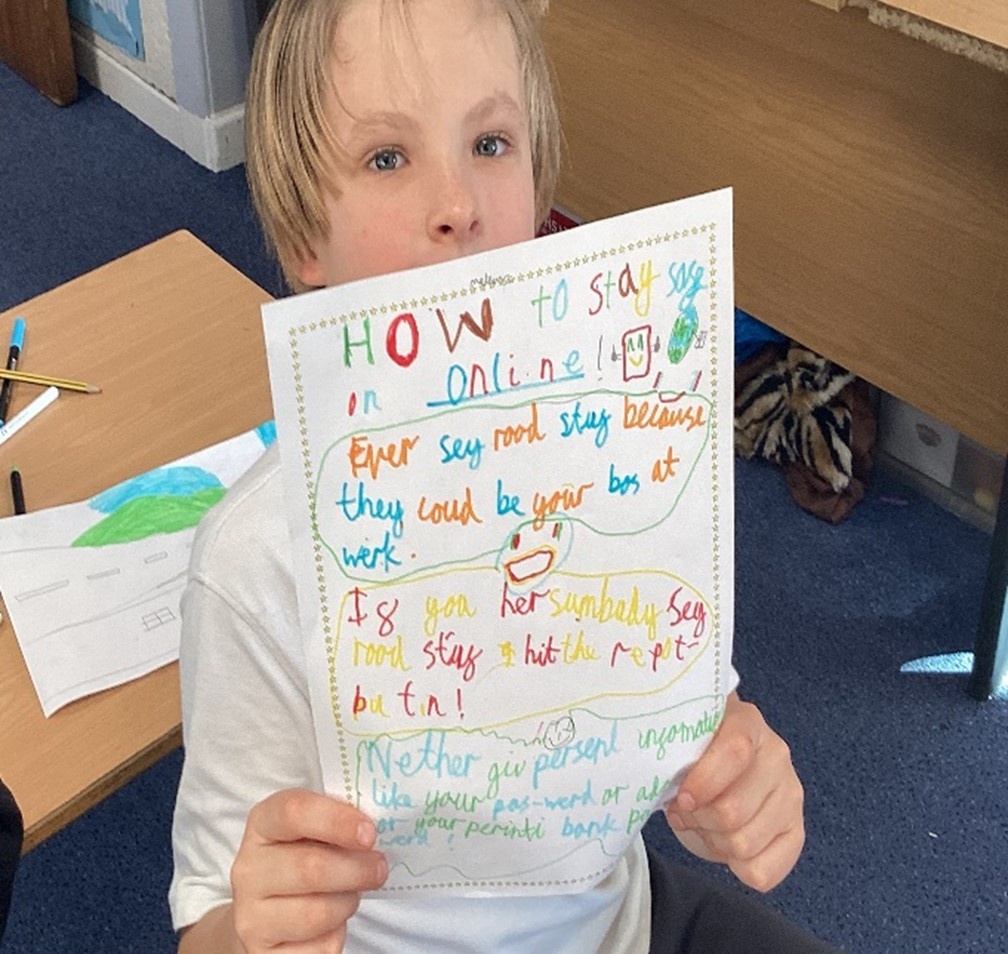 HOW to stay safe
on online!
Ever sey rood stuf because
they coud be your bos at
werk.
If you her sumbady sey
rood stuf hit the repot-
butin!
Nether giv persenl infomatio
like your pas-werd or
or your perinti bank
werd!